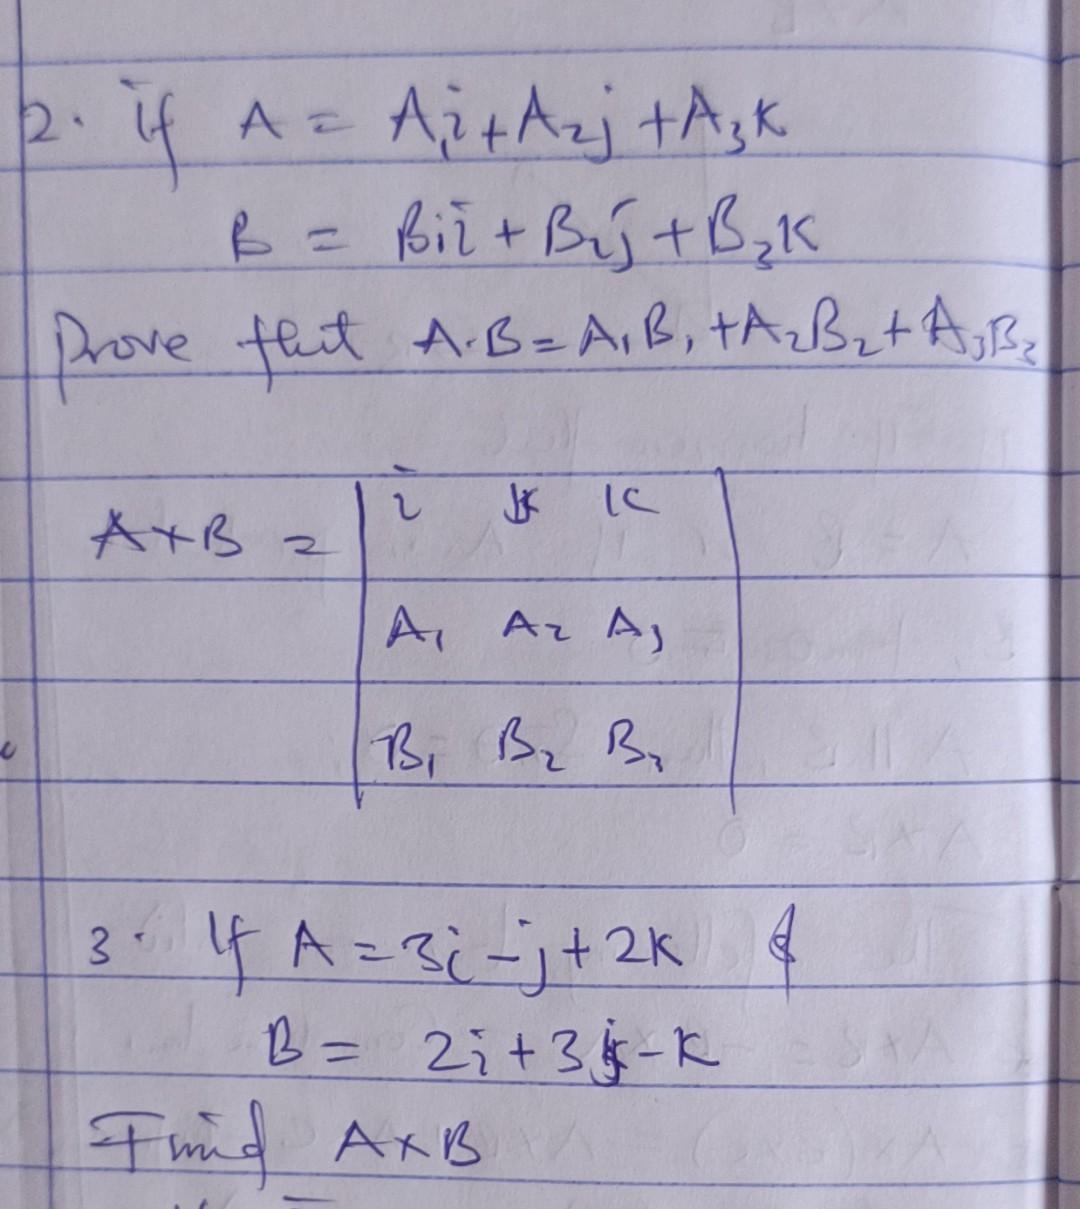 2. if A = A₁i+A₂j+A₃k
B = B₁i+B₂j+B₃k
Prove that A.B=A₁B₁+A₂B₂+A₃B₃
i j k
A×B =
A₁ A₂ A₃
B₁ B₂ B₃
3. If A=3i-j+2k &
B= 2i+3j-k
Find A×B